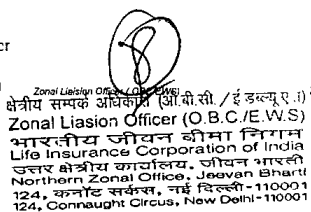 Zonal Liaision Officer (OBC/EWS)
क्षेत्रीय सम्पर्क अधिकारी (ओ.बी.सी./ई डब्ल्यू ए
Zonal Liasion Officer (O.B.C./E.W.S)
भारतीय जीवन बीमा निगम
Life Insurance Corporation of India
उत्तर क्षेत्रीय कार्यालय, जीवन भारती
Northern Zonal Office, Jeevan Bharti
124, कनॉट सर्कस, नई दिल्ली-110001
124, Connaught Circus, New Delhi-110001